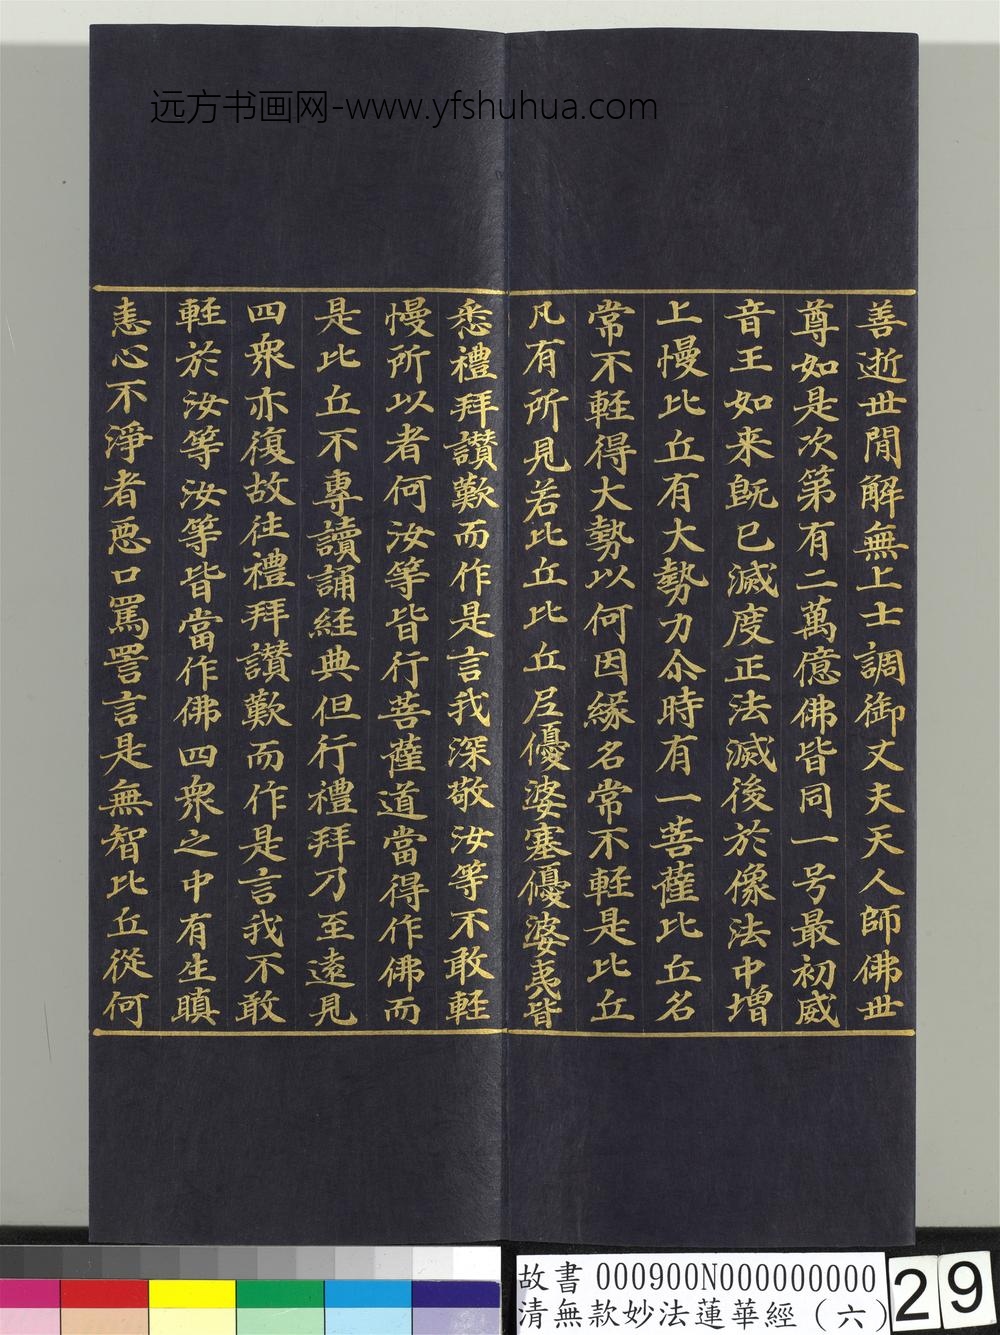 远方书画网-www.yfshuhua.com
善逝世間解無上士調御丈夫天人師佛世
尊如是次第有二萬億佛皆同一号最初威
音王如来既已滅度正法滅後於像法中增
上慢比丘有大勢力尒時有一菩薩比丘名
常不輕得大勢以何因緣名常不輕是比丘
凡有所見若比丘比丘尼優婆塞優婆夷皆
悉禮拜讃歎而作是言我深敬汝等不敢輕
慢所以者何汝等皆行菩薩道當得作佛而
是比丘不專讀誦經典但行禮拜乃至遠見
四衆亦復故往禮拜讃歎而作是言我不敢
輕於汝等汝等皆當作佛四衆之中有生瞋
恚心不淨者惡口罵詈言是無智比丘從何
故書 000900N000000000
清無款妙法蓮華經（六）
29